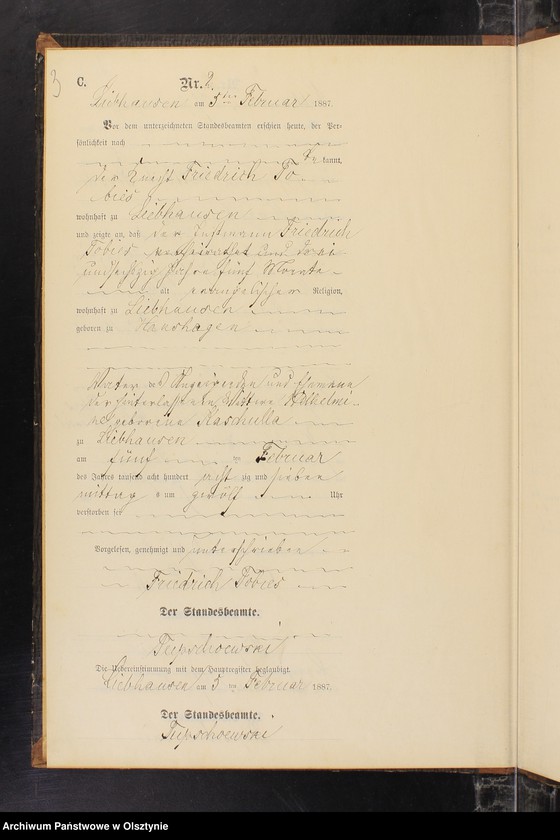 3
C.
Nr. 2.
Liebhausen am 5ten Februar 1887.
Vor dem unterzeichneten Standesbeamten erschien heute, der Per-
sönlichkeit nach
kannt,
der Knecht Friedrich To
bies
wohnhaft zu Liebhausen
und zeigte an, daß der Instmann Friedrich
Tobies verheirathet und drei
undsechszig Jahre fünf Monate
alt evangelischer Religion,
wohnhaft zu Liebhausen
geboren zu Hanshagen
Vater des und Ehemann
der hinterlassenen Wittwe Wilhelmi-
ne geborene Kaschulla
zu Liebhausen
am fünf ten Februar
des Jahres tausend acht hundert acht zig und sieben
mittag s um zwölf Uhr
verstorben sei
Vorgelesen, genehmigt und unterschrieben
Friedrich Tobies
Der Standesbeamte.
Die Uebereinstimmung mit dem Hauptregister beglaubigt.
Liebhausen am 5 ten Februar 1887.
Der Standesbeamte.
Archiwum Państwowe w Olsztynie